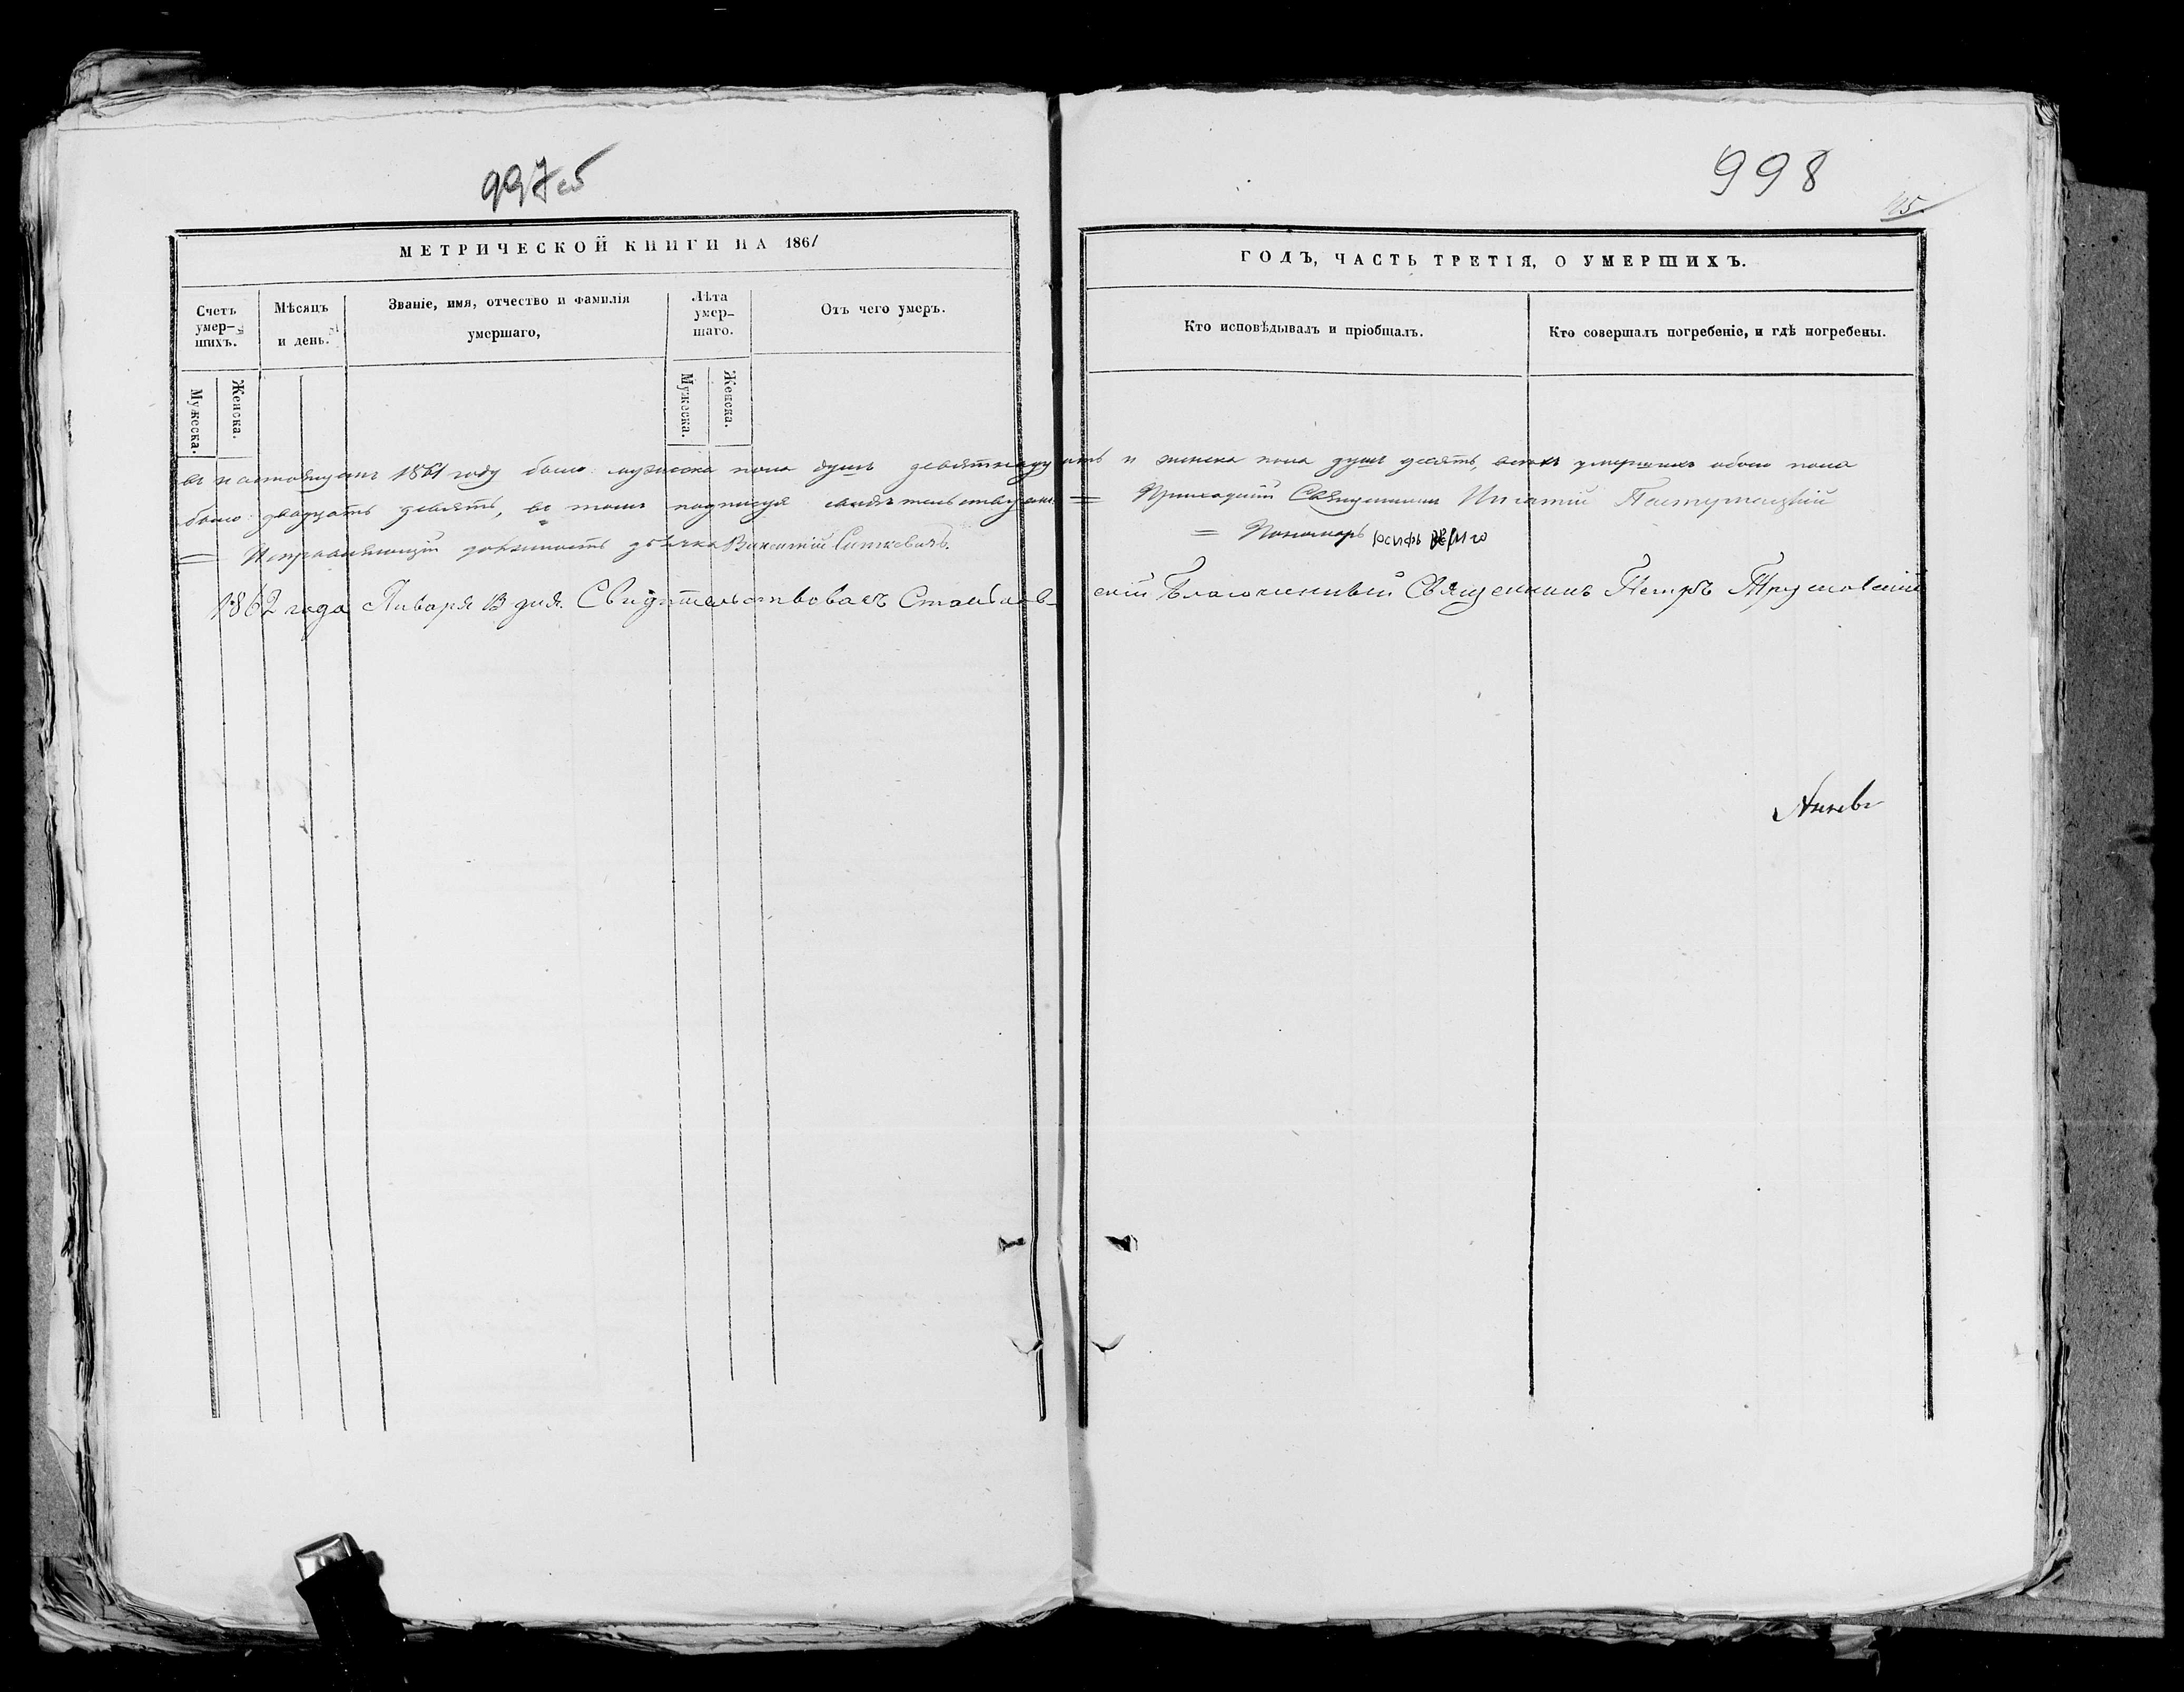 997об
998
МЕТРИЧЕСКОЙ КНИГИ НА 1861
ГОДЪ, ЧАСТЬ ТРЕТІЯ, О УМЕРШИХЪ.
Счетъ умер-шихъ.
Мужеска.
Женска.
Мѣсяцъ и день.
Званіе, имя, отчество и фамилія умершаго,
Лѣта умер-шаго.
Мужеска.
Женска.
Отъ чего умеръ.
Кто исповѣдывалъ и пріобщалъ.
Кто совершалъ погребеніе, и гдѣ погребены.
въ настоящемъ 1861 году было мужеска пола душъ девятнадцать и женска пола душъ десять, всехъ умершихъ обоего пола
было двадцать девять, въ томъ подписуя свидѣтельствуемъ = Приходскій Священникъ Игнатій
= Исправляющій должность дьячка Викентій = Пономарь Іосифъ
1862 года Января 13 дня. Свидѣтельствовалъ благочинный Священникъ Петръ